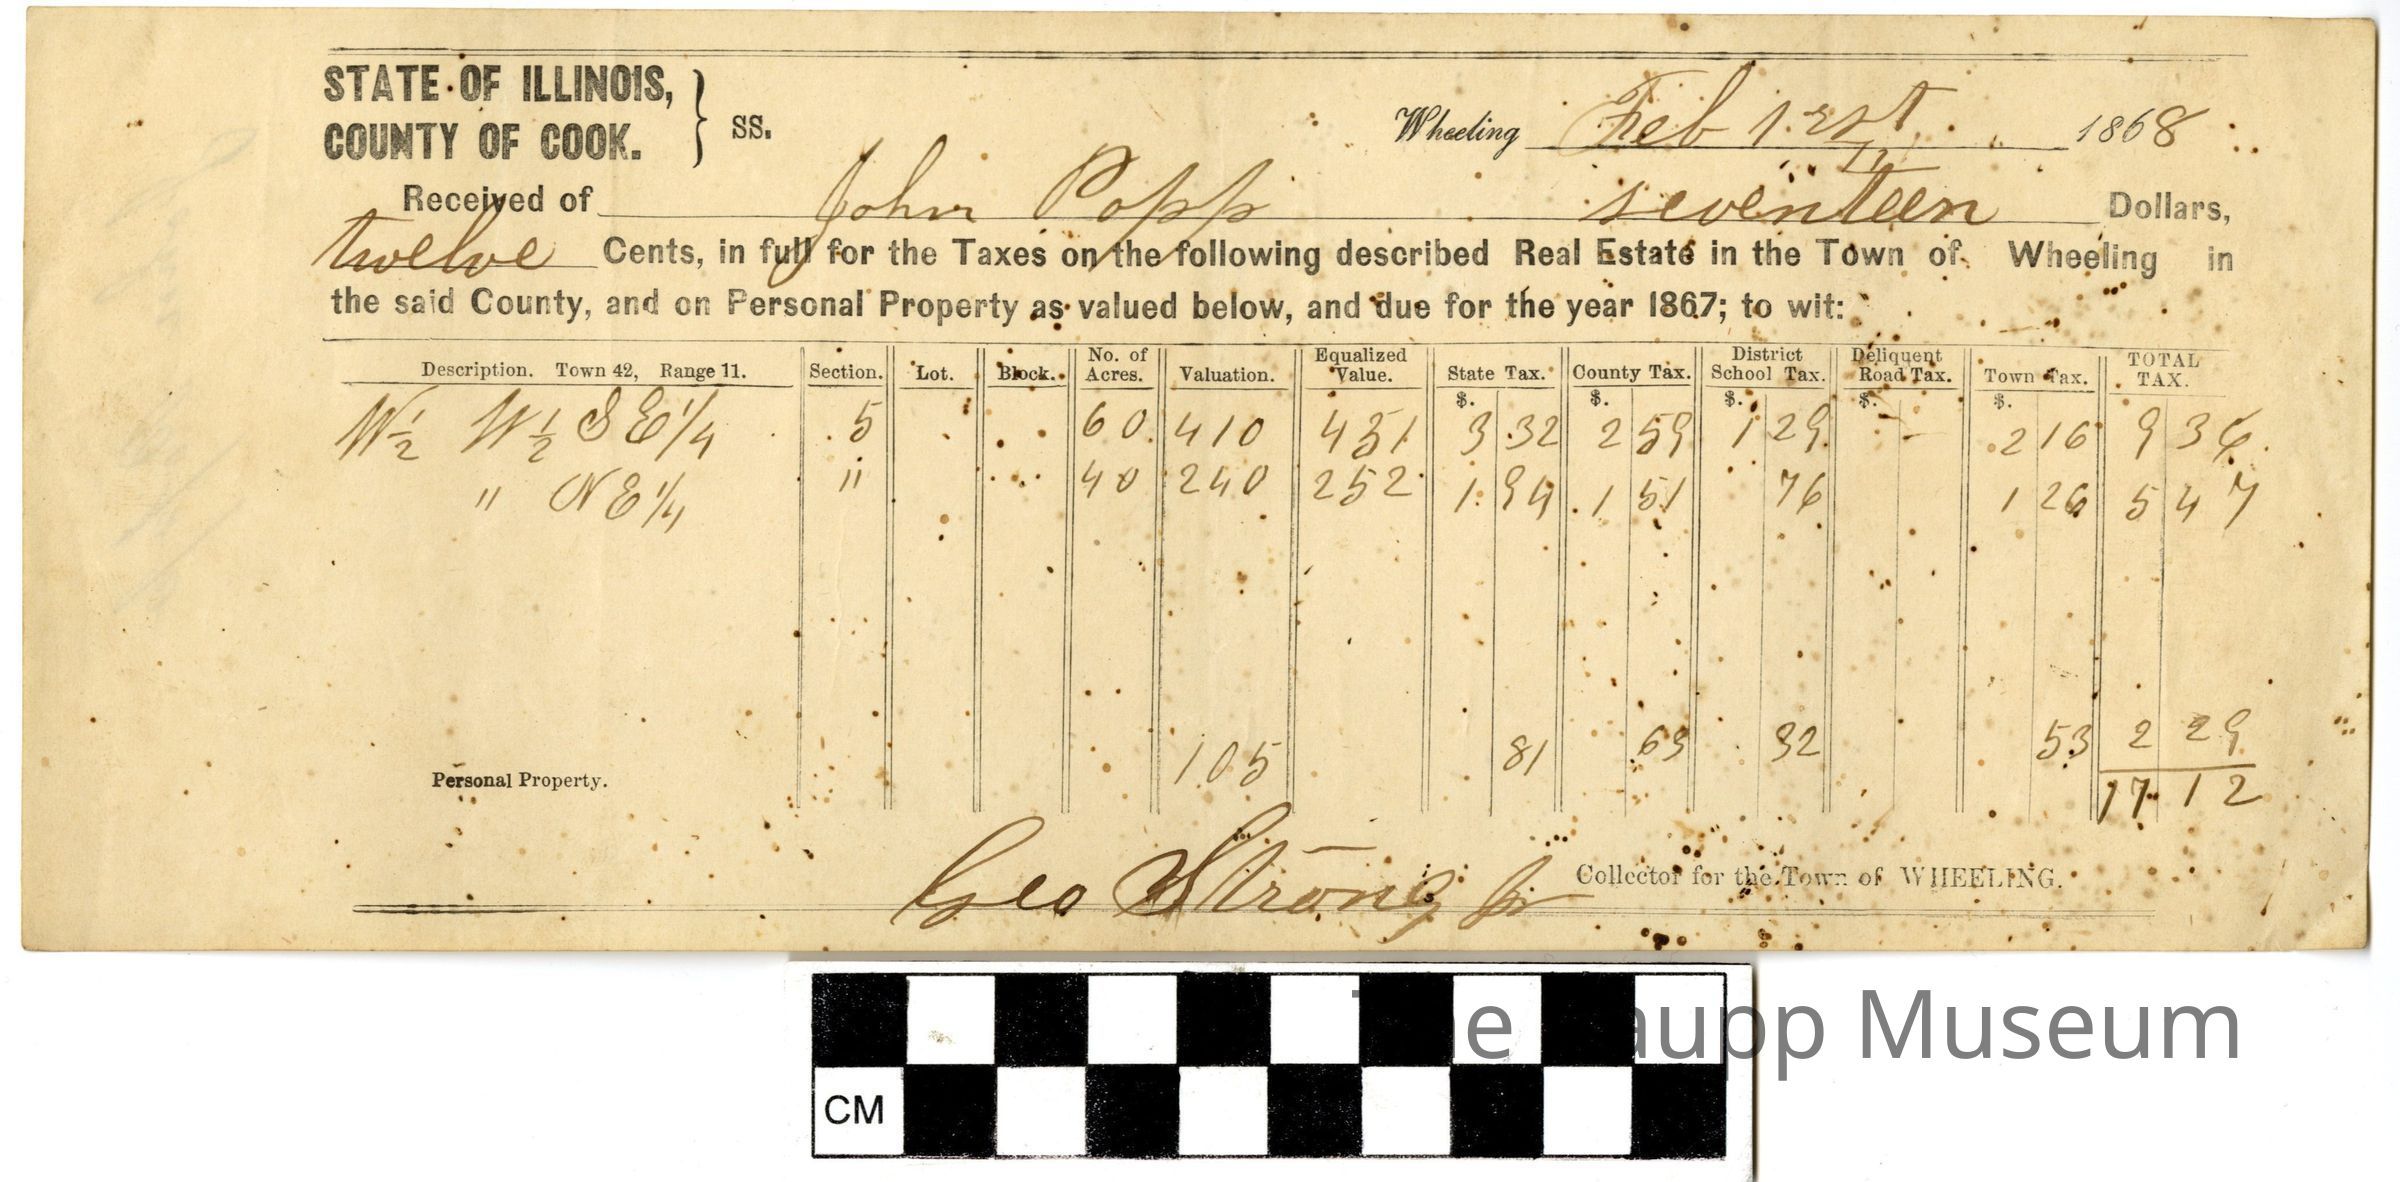 STATE OF ILLINOIS,
COUNTY OF COOK. } ss.
Wheeling Feb 1st 1868
Received of John Popp seventeen Dollars,
twelve Cents, in full for the Taxes on the following described Real Estate in the Town of Wheeling in
the said County, and on Personal Property as valued below, and due for the year 1867; to wit:
Description. Town 42, Range 11. Section. Lot. Block. No. of Acres. Valuation. Equalized Value. State Tax. County Tax. District School Tax. Deliquent Road Tax. Town Tax. TOTAL TAX.
$. $. $. $. $.
W 1/2 W 1/2 S E 1/4 5 60 410 431 3 32 2 59 1 29 - - 2 16 9 36
" N E 1/4 " 40 240 252 1 94 1 51 76 1 26 5 47
Personal Property. 105 81 63 32 53 2 29
17 12
Geo Strong Jr Collector for the Town of WHEELING.
e aupp Museum
CM